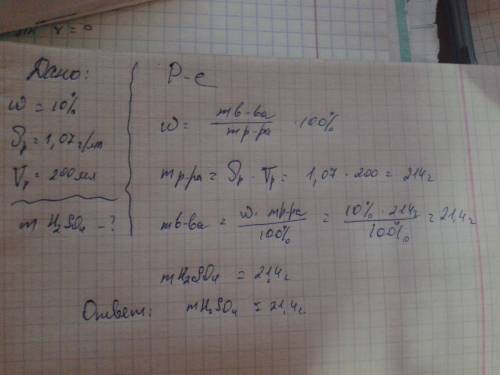 γ = 0
Дано:
ω = 10%
ρр = 1,07 г/мл
Vр = 200 мл
m H₂SO₄ - ?
Р-е
ω = mв-ва / mр-ра · 100%
mр-ра = ρр · Vр = 1,07 · 200 = 214г
mв-ва = ω · mр-ра / 100% = 10% · 214г / 100% = 21,4г
mH₂SO₄ = 21,4г
Ответ: mH₂SO₄ = 21,4г